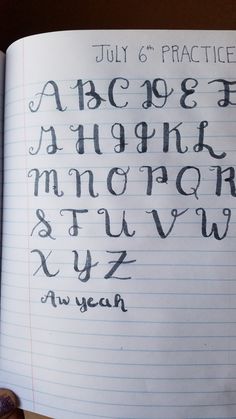 JULY 6th PRACTICE
A B C D E F
G H I J K L
M N O P Q R
S T U V W
X Y Z
Aw yeah